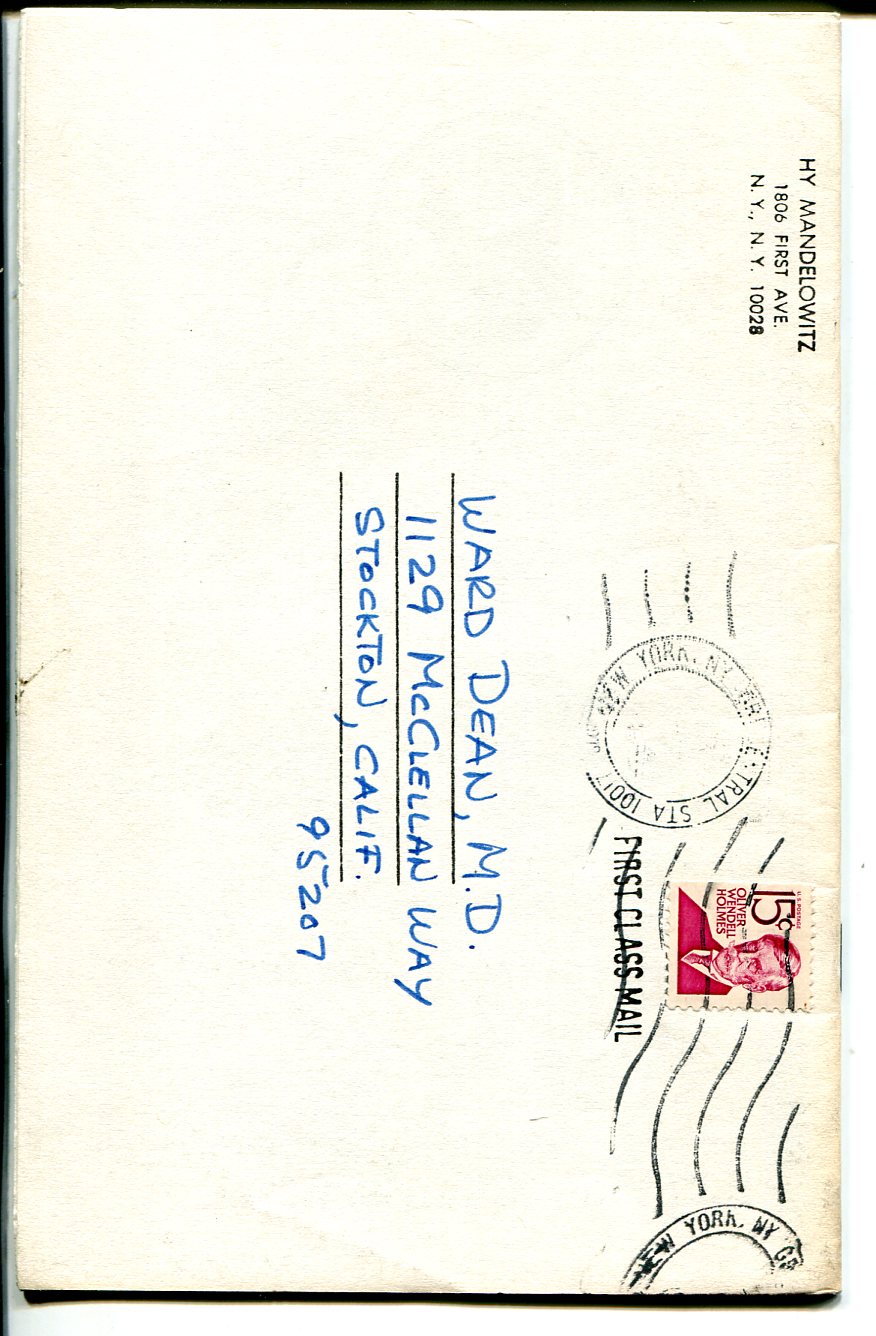 HY MANDELOWITZ
1806 FIRST AVE.
N. Y., N. Y. 10028
NEW YORK, NY
TRAL STA 1001
U.S. POSTAGE
15¢
OLIVER
WENDELL
HOLMES
FIRST CLASS MAIL
NEW YORK, NY
WARD DEAN, M.D.
1129 McCLELLAN WAY
STOCKTON, CALIF.
95207